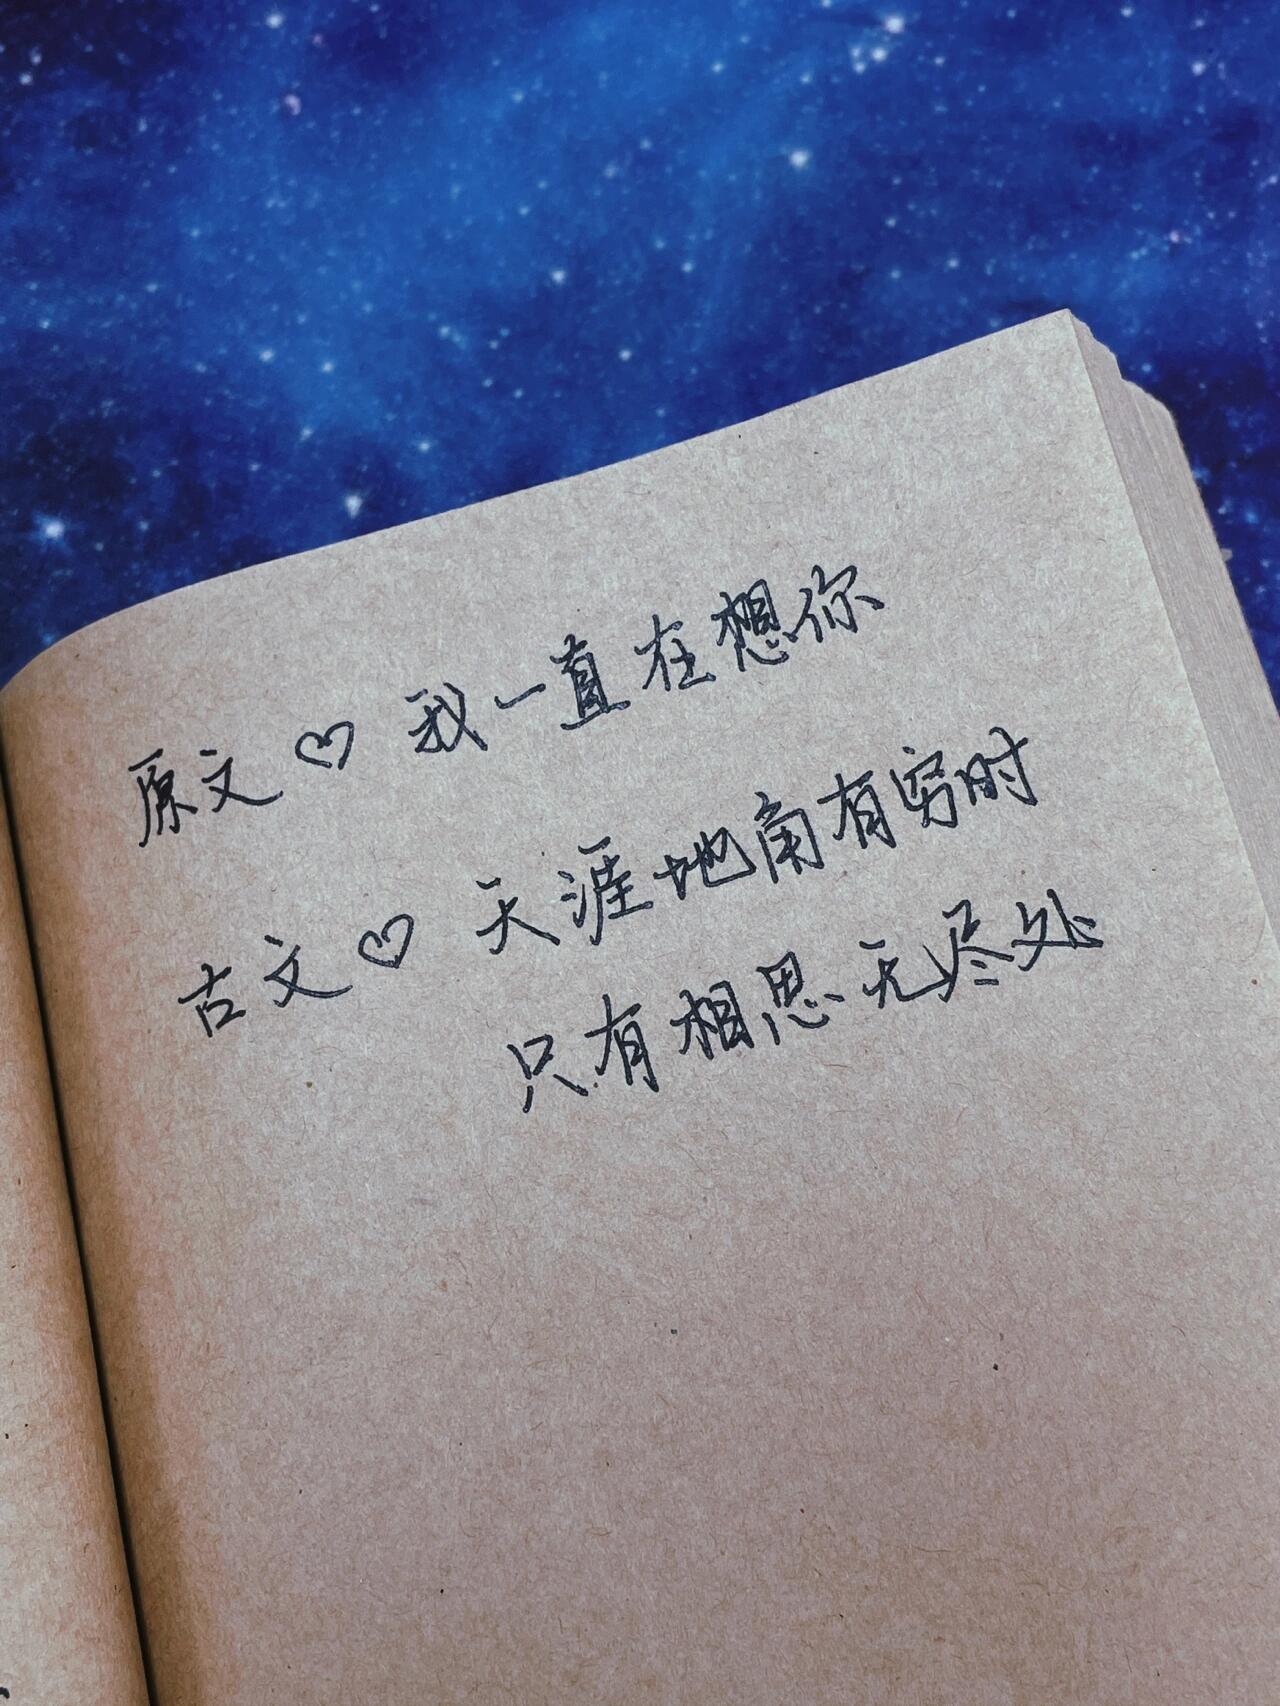 原文♡我一直在想你
古文♡天涯地角有穷时
只有相思无尽处